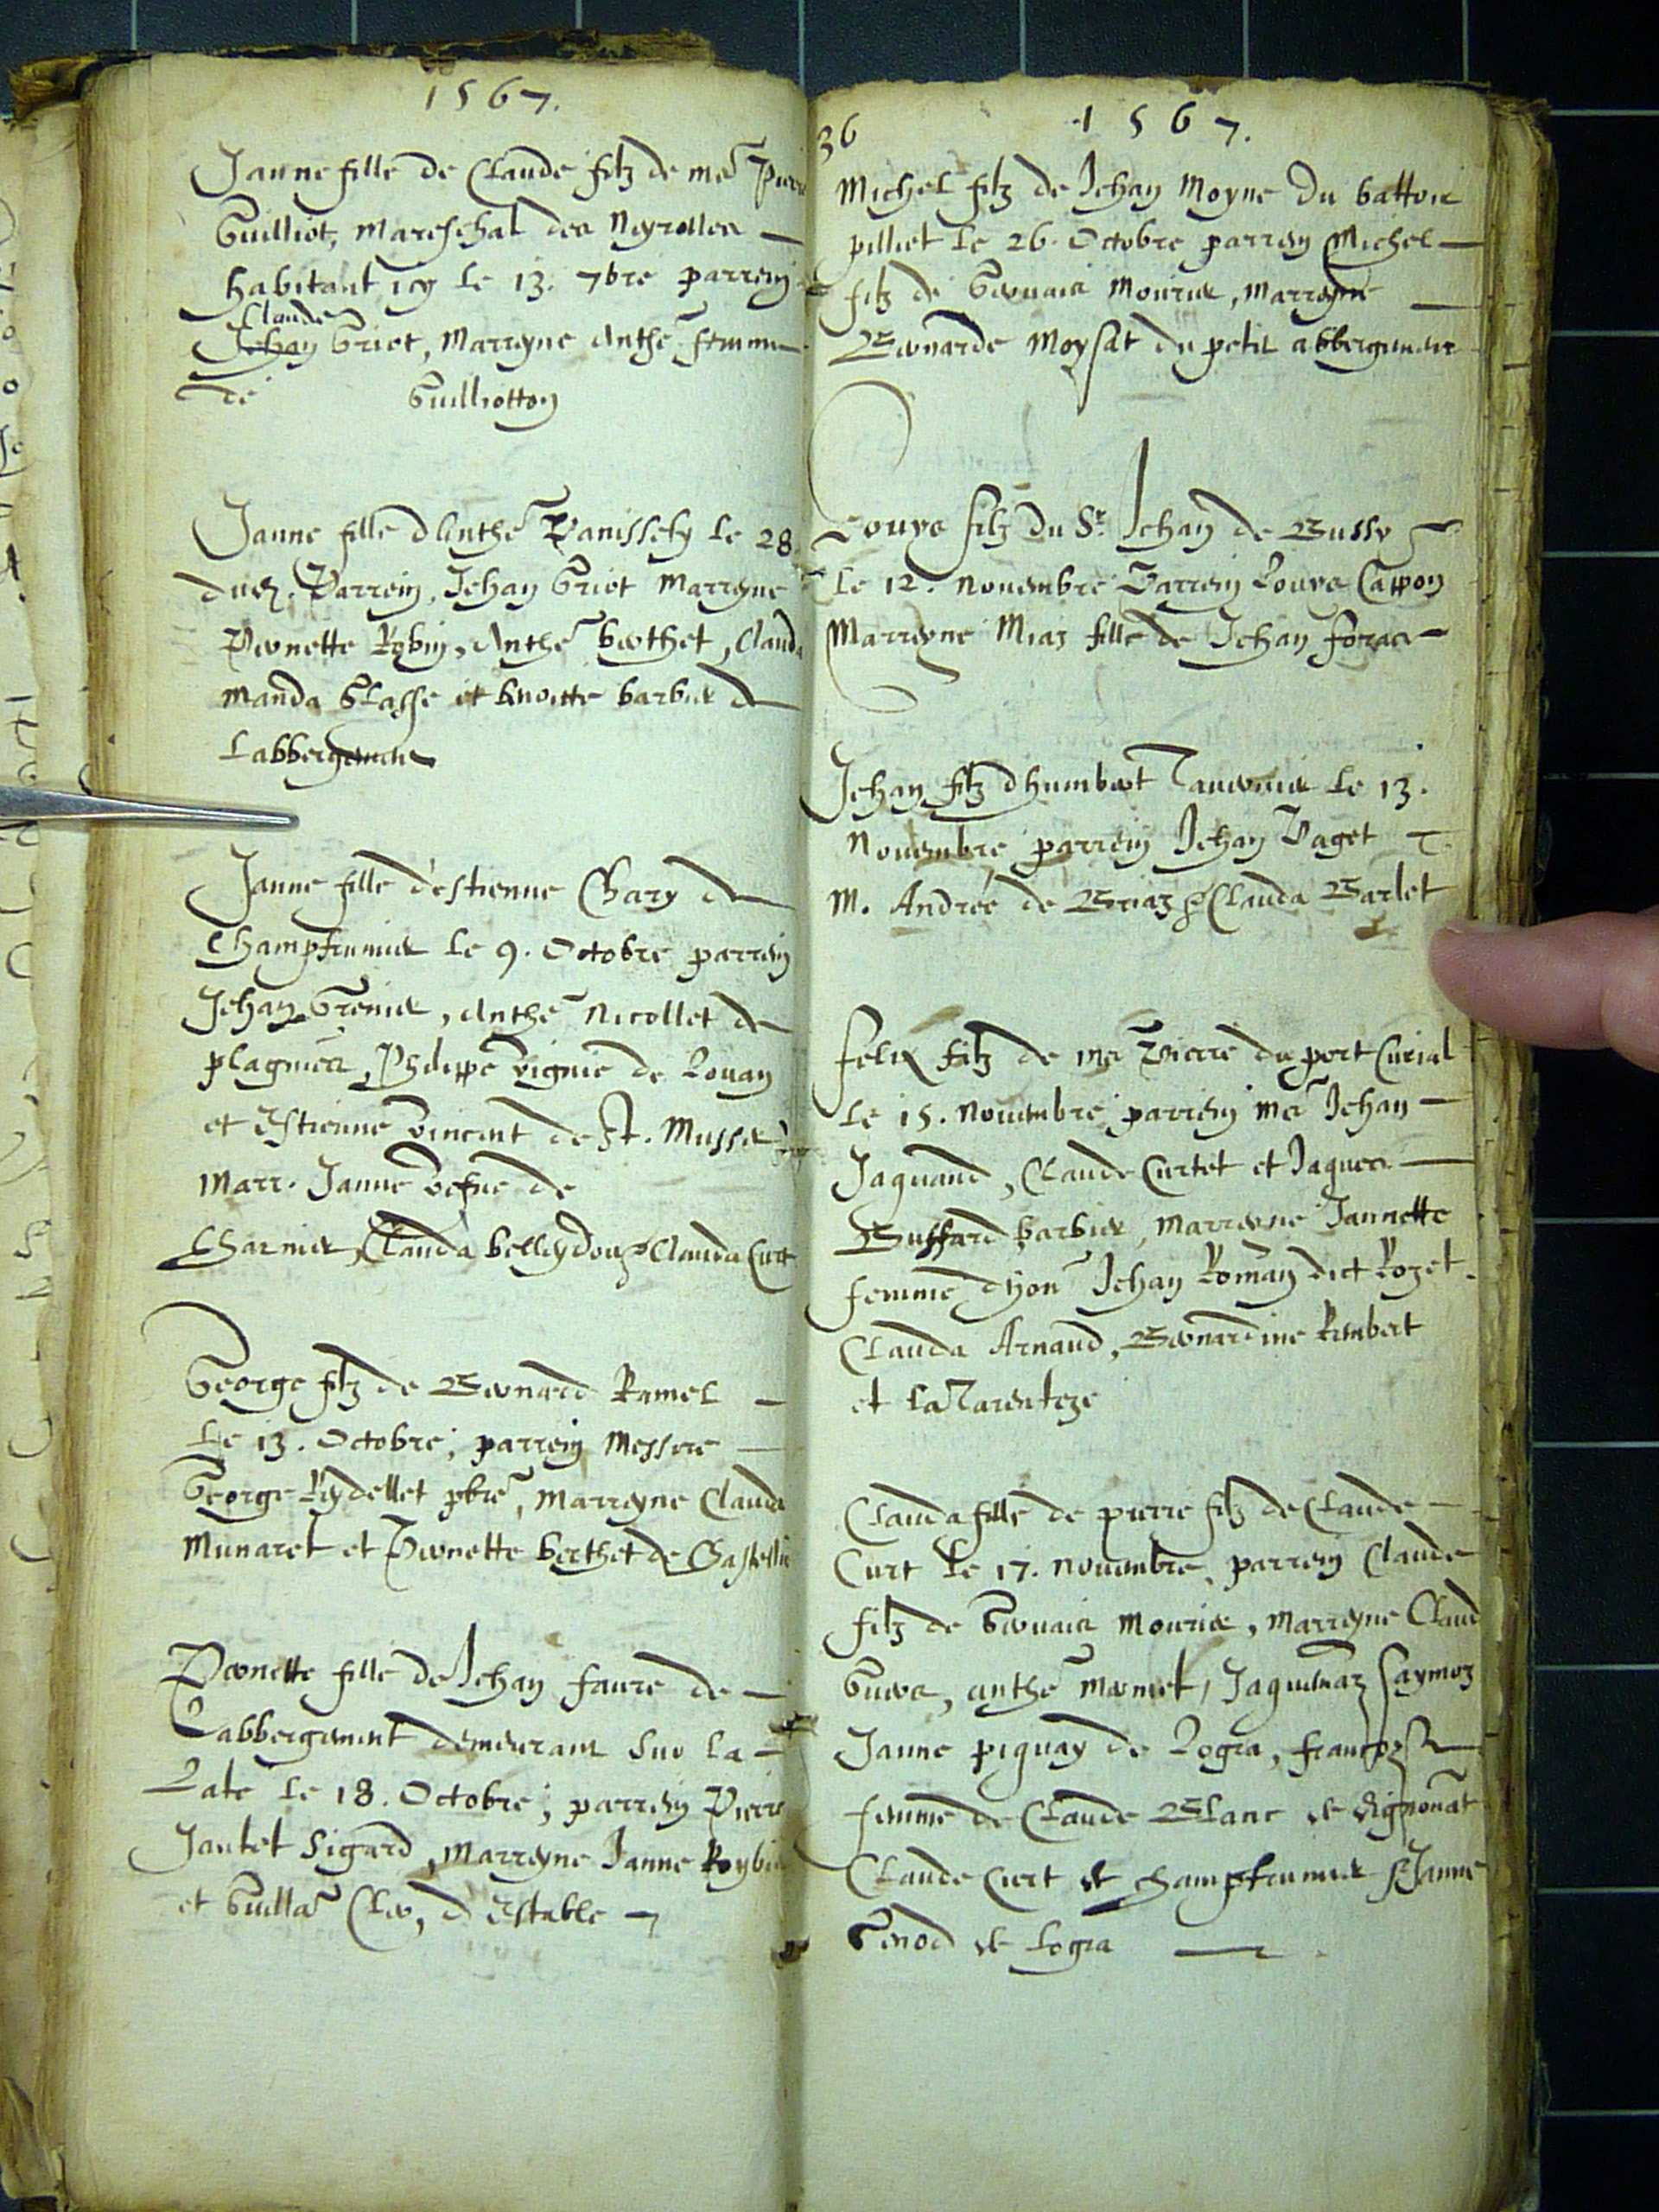 1567.
Janne fille de Claude filz de me Pierre
Guilliot, Mareschal des Neyrolles
habitant icy le 13. 7bre parrein
Claude
Jehan Griot, Marreyne Anthe femme
de Guilliotton
Janne fille d'Anthe Panissety le 28
dud. Parrein, Jehan Griot Marreyne
Pernette Robin, Anthe berthet, Clauda
manda Glasse et benoitte barbier de
Labbergement
Janne fille d'estienne Chary de
Champfrumier le 9. Octobre parrein
Jehan Grenier, Anthe Nicollet de
plagnier, Philippe vignie de Louan
et Estienne vincent de St. Mussa
Marr. Janne vefue de
Charnier, Clauda belleydoux Clauda Curt
George filz de Bernard Ramel
Le 13. Octobre, parrein Messire
George Reydellet pbre, marreyne Clauda
Munaret et Pernette berthet de
Pernette fille de Jehan faure de
Labbergement demeurant sur la
Late le 18. Octobre, parrein Pierre
Jantet Sigard, marreyne Janne Roybin
et Guilla Cler, d'Estable
36 1567.
Michel filz de Jehan Moyne du battoir
pilliet le 26. Octobre parrein Michel
filz de Gervais Mourier, Marreyne
Bernarde Moysat du petit abbergement
Louys filz du Sr. Jehan de Bussy
le 12. Nouembre Parrein Louys Cappon
Marreyne Miaz fille de Jehan foras
Jehan filz d'humbert Tauernier le 13.
Nouembre, parrein Jehan Paget
M. Andrée de Briaz Clauda Barlet
felix filz de me Pierre du port Curial
le 15. Nouembre parrein me Jehan
Jaquand, Claude Curtet et Jaques
Buffard barbier, marreyne Jannette
femme d'hon Jehan Roman dict Rozet.
Clauda Arnaud, Bernardine Rimbert
et la Tarenteze
Clauda fille de pierre filz de Claude
Curt le 17. Nouembre, parrein Claude
filz de Gervais Mourier, Marreyne Claud
Guers, anthe mermet, Jaquemaz saymoz
Janne piquay de Logra, françoise
femme de Claude Blanc de Vignonat
Claude Curt de champfrumier Janne
Genod de Logra